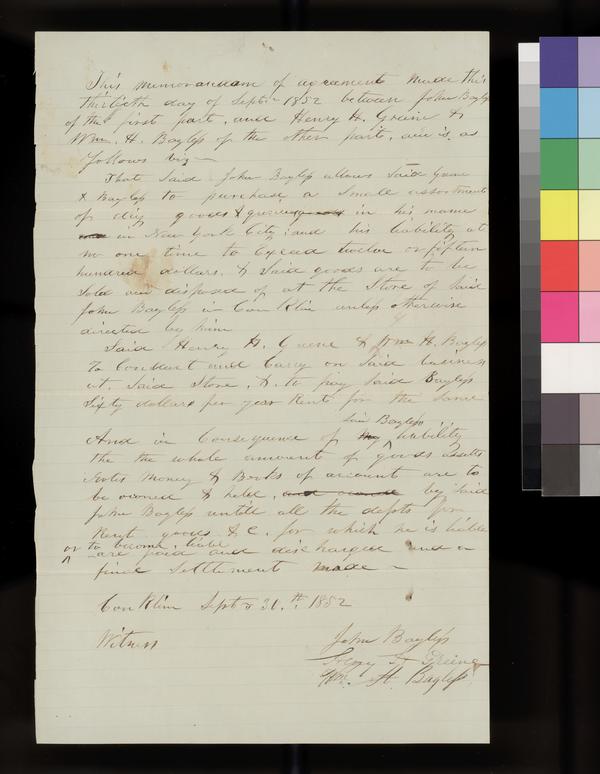 This memorandum of agreement Made this
thirtieth day of Septr 1852 between John Bayles
of the first part, and Henry H. Greene &
Wm. H. Bayles of the other part, and is as
follows viz —
That Said John Bayles allows Said Greene
& Bayles to purchase a Small assortment
of dry goods & in his name
in New York City; and his liability at
no one time to Exceed twelve or fifteen
hundred dollars, & Said goods are to be
Sold and disposed of at the Store of Said
John Bayles in Conklin unless otherwise
directed by him
Said Henry H. Greene & Wm H. Bayles
To Conduct and Carry on Said business
at Said Store, & to pay Said Bayles
Sixty dollars per year Rent for the Same
Said Bayles
And in Consequence of liability
the the whole amount of goods assetts
Notes Money & Books of account are to
be owned & held, by Said
John Bayles untill all the depts for
Rent goods & C. for which he is liable
or to become liable
are paid and discharged and a
final Settlement made —
Conklin Septr 30.th 1852
Witness
John Bayles
Henry H Greene
Wm. H. Bayles